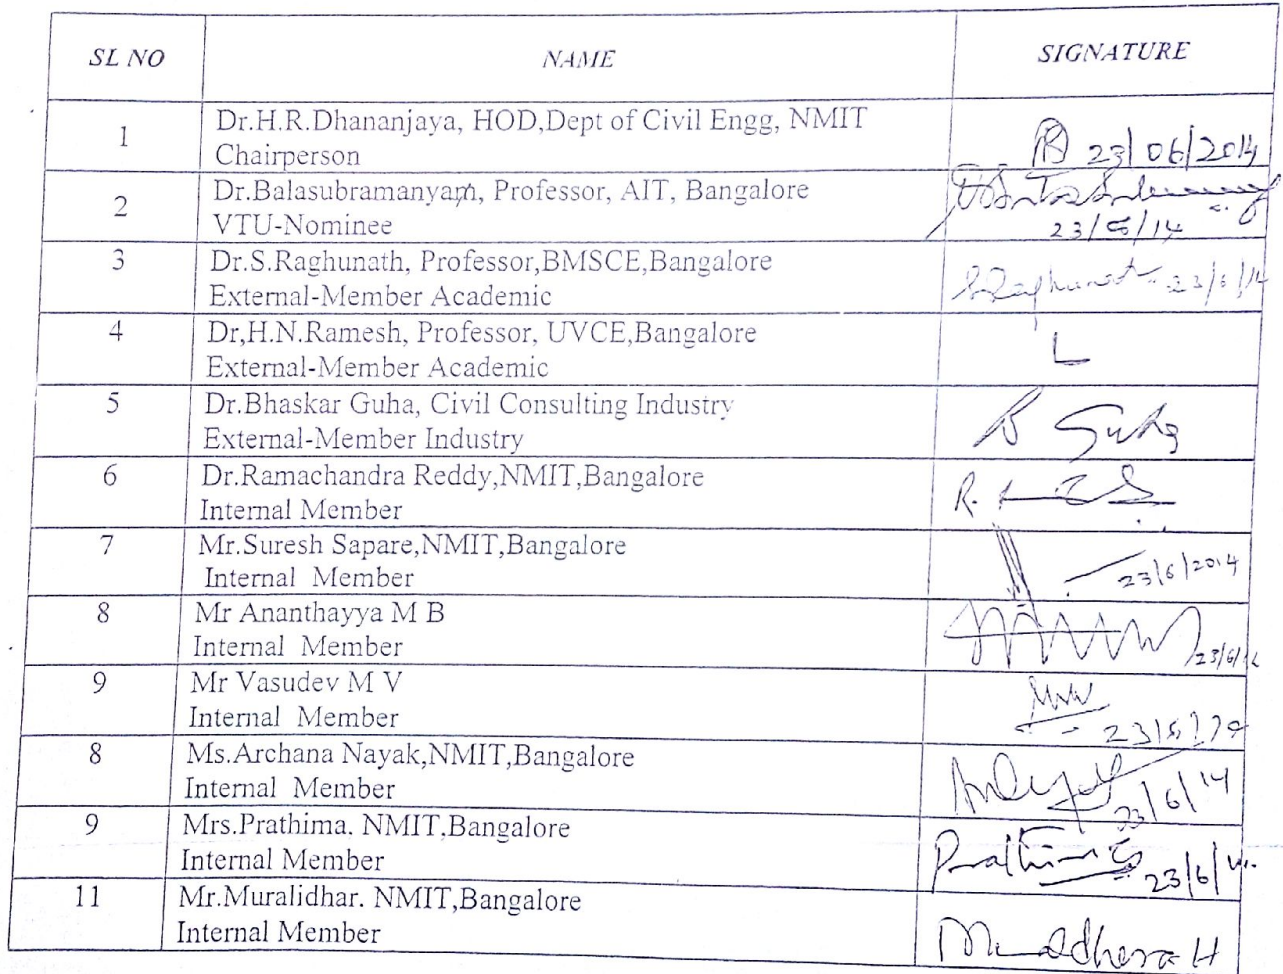 SL NO NAME SIGNATURE
1 Dr.H.R.Dhananjaya, HOD,Dept of Civil Engg, NMIT
Chairperson
23/06/2014
2 Dr.Balasubramanyam, Professor, AIT, Bangalore
VTU-Nominee
23/6/14
3 Dr.S.Raghunath, Professor,BMSCE,Bangalore
External-Member Academic
SRaghunath 23/6/14
4 Dr,H.N.Ramesh, Professor, UVCE,Bangalore
External-Member Academic
L
5 Dr.Bhaskar Guha, Civil Consulting Industry
External-Member Industry
B Guha
6 Dr.Ramachandra Reddy,NMIT,Bangalore
Internal Member
R.
7 Mr.Suresh Sapare,NMIT,Bangalore
Internal Member
23/6/2014
8 Mr Ananthayya M B
Internal Member
23/6/14
9 Mr Vasudev M V
Internal Member
8 Ms.Archana Nayak,NMIT,Bangalore
Internal Member
23/6/14
9 Mrs.Prathima. NMIT,Bangalore
Internal Member
Prathima 23/6/14.
11 Mr.Muralidhar. NMIT,Bangalore
Internal Member
H